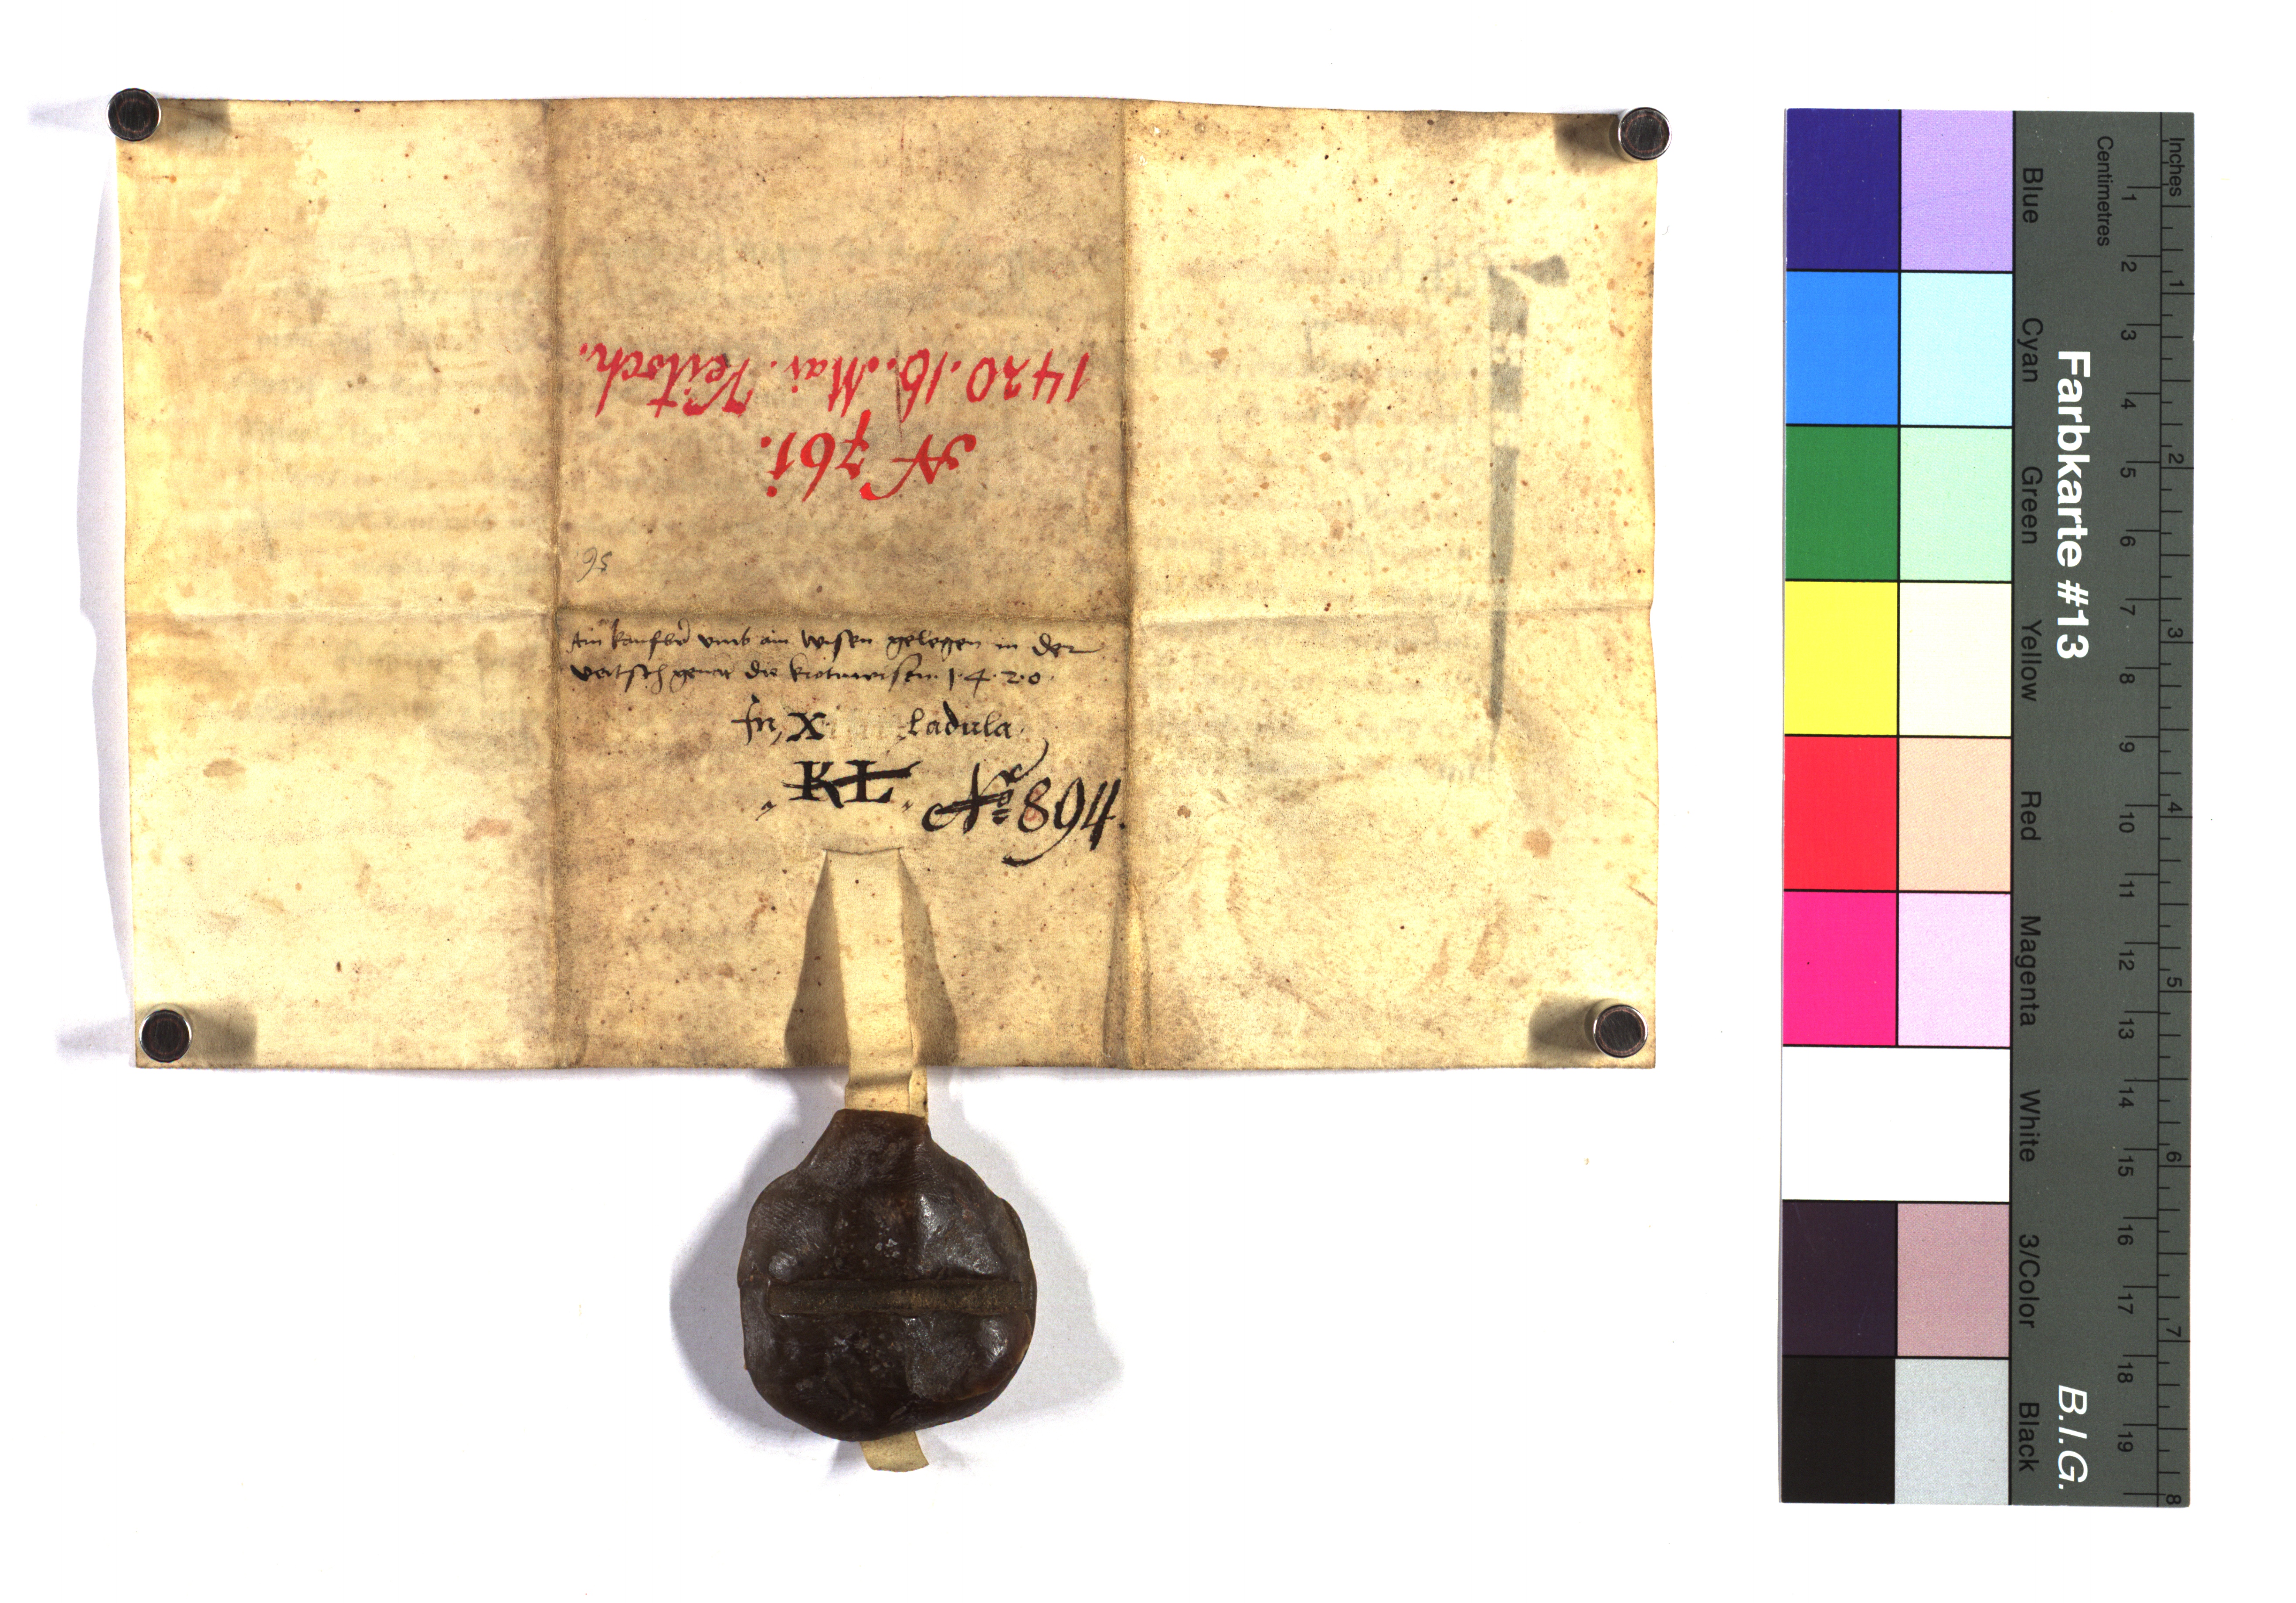 1420. 16. Mai. Veitsch.
N 761.
56
Ain kaufbr vmb ain wisen gelegen in der
veitsch genat die krotnwisen 1·4·2·0·
In X ladula
KL No 894.
Inches
Centimetres
1 2 3 4 5 6 7 8 9 10 11 12 13 14 15 16 17 18 19
1 2 3 4 5 6 7 8
Farbkarte #13
B.I.G.
Blue Cyan Green Yellow Red Magenta White 3/Color Black